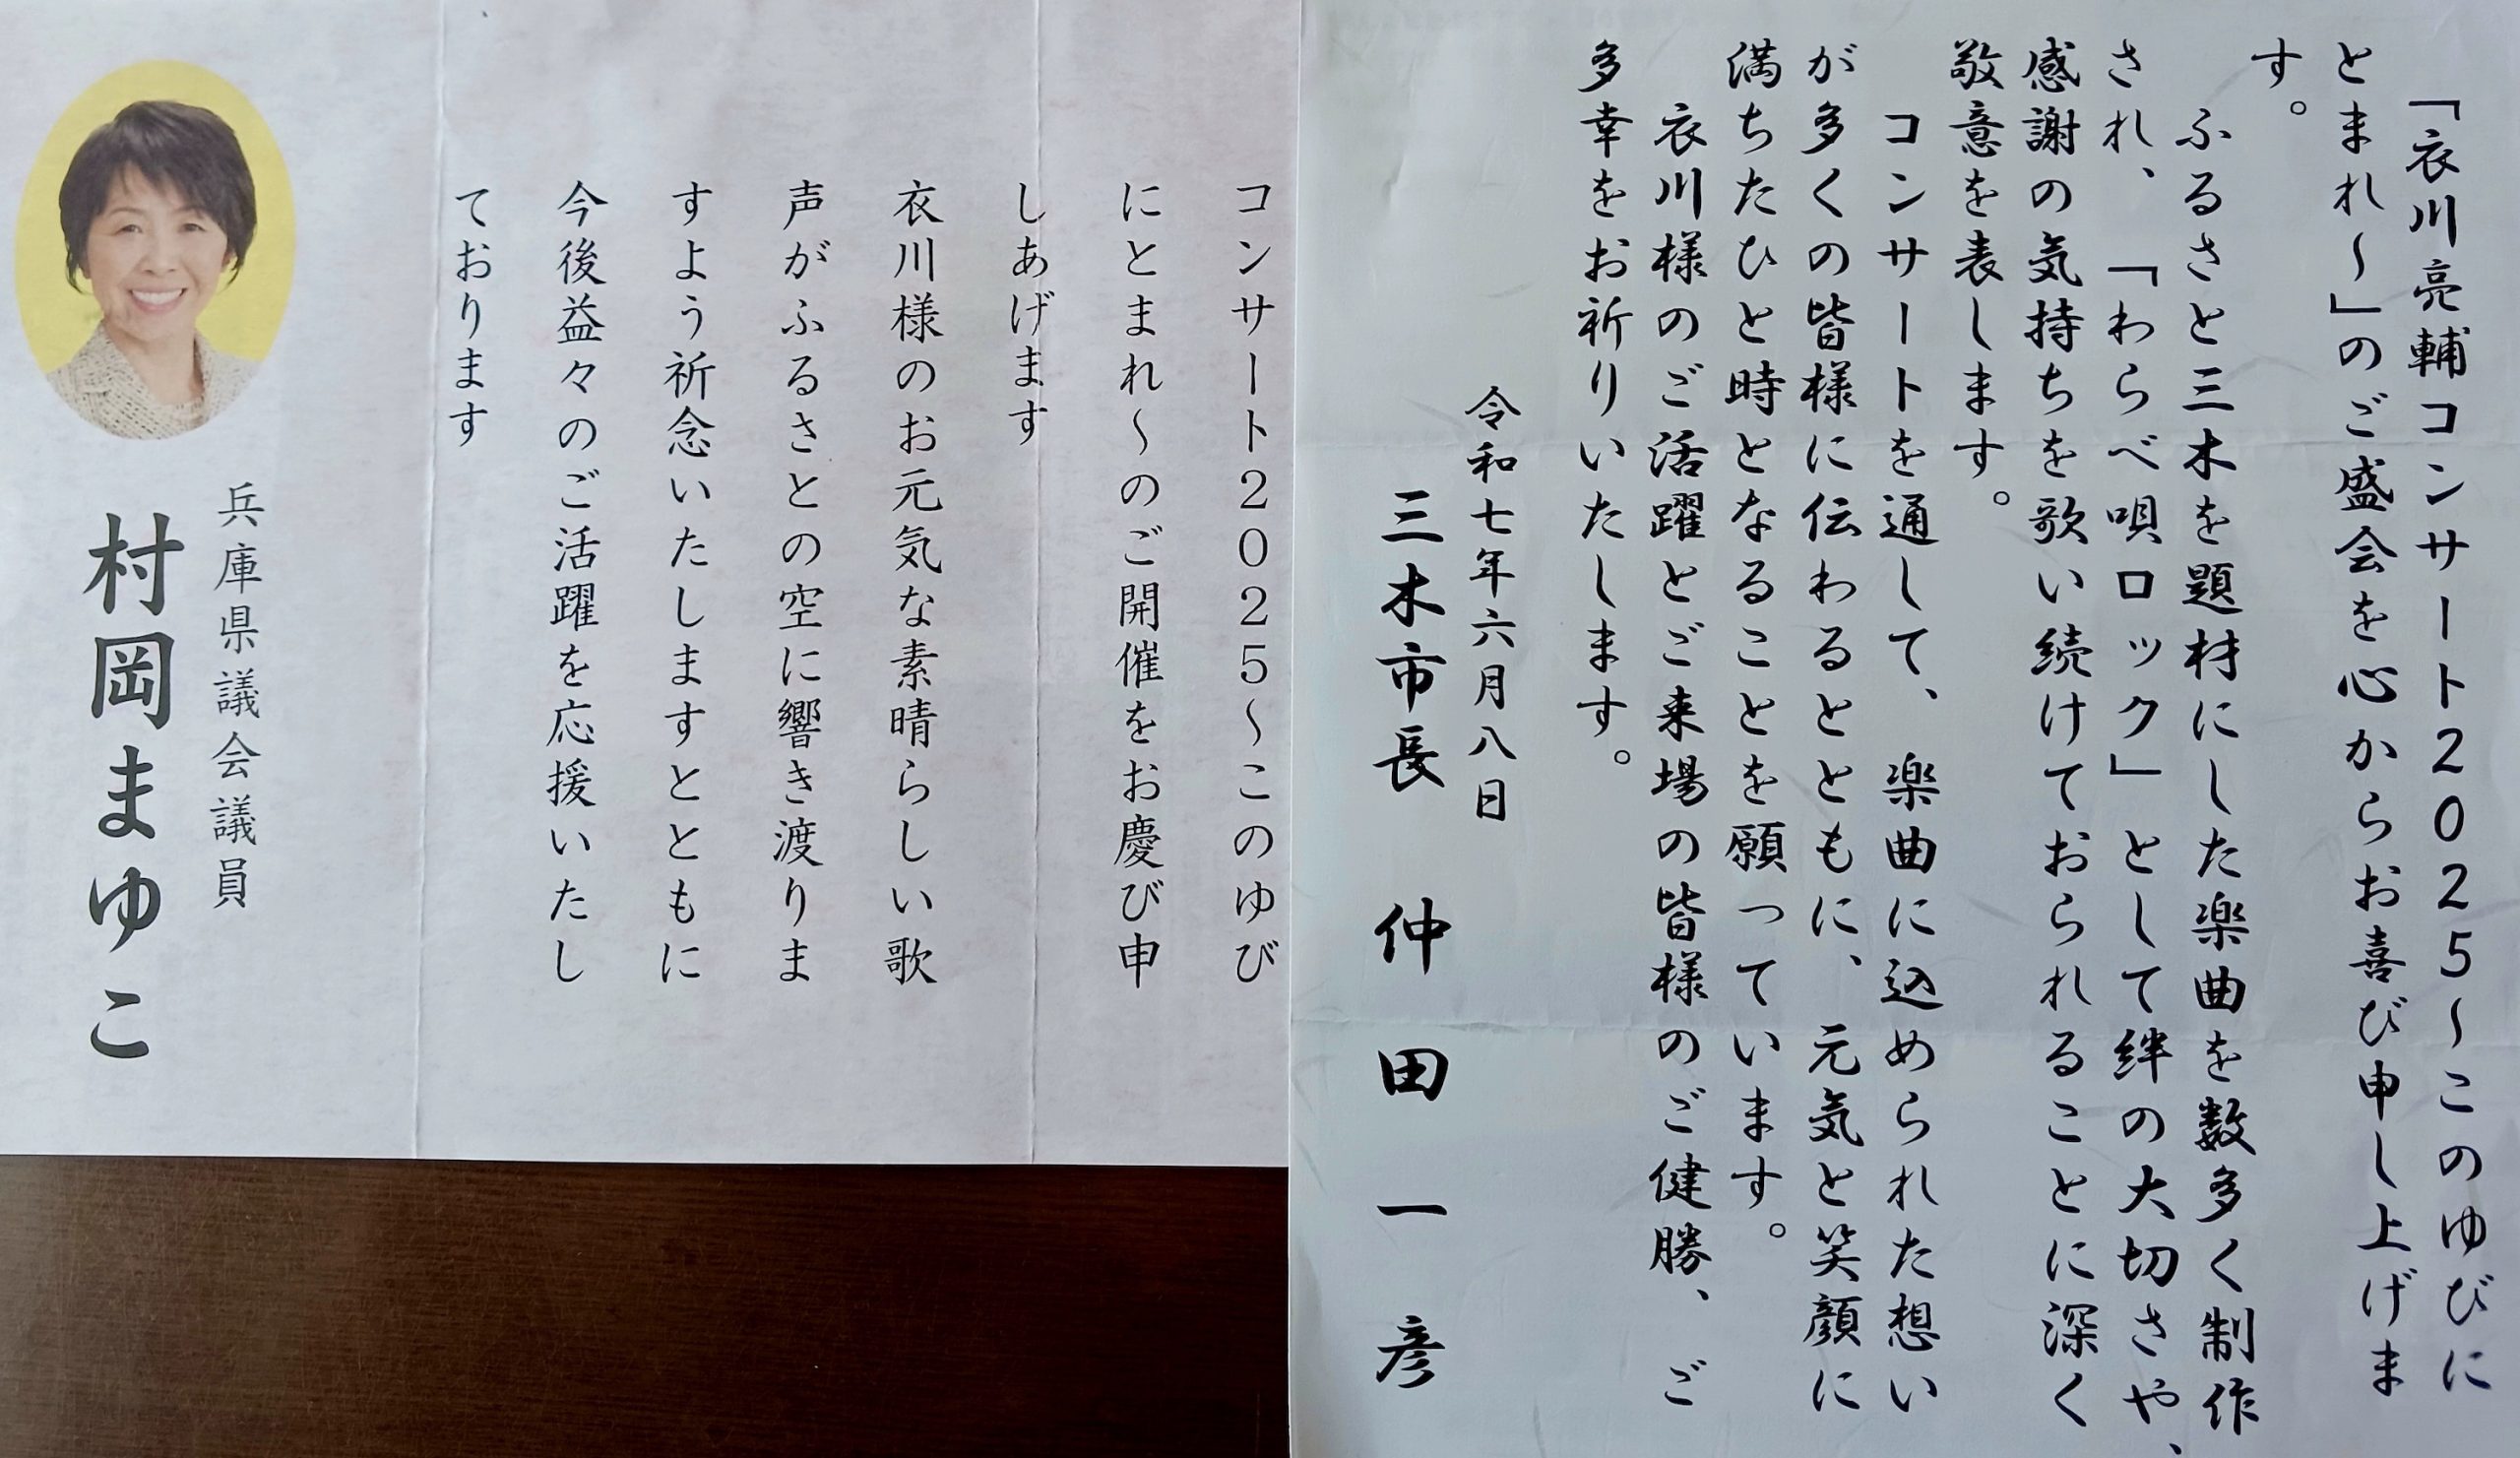 「衣川亮輔コンサート2025～このゆびに
とまれ～」のご盛会を心からお喜び申し上げま
す。
ふるさと三木を題材にした楽曲を数多く制作
され、「わらべ唄ロック」として絆の大切さや、
感謝の気持ちを歌い続けておられることに深く
敬意を表します。
コンサートを通して、楽曲に込められた想い
が多くの皆様に伝わるとともに、元気と笑顔に
満ちたひと時となることを願っています。
衣川様のご活躍とご来場の皆様のご健勝、ご
多幸をお祈りいたします。
令和七年六月八日
三木市長 仲田一彦
コンサート2025～このゆび
にとまれ～のご開催をお慶び申
しあげます
衣川様のお元気な素晴らしい歌
声がふるさとの空に響き渡りま
すよう祈念いたしますとともに
今後益々のご活躍を応援いたし
ております
兵庫県議会議員
村岡まゆこ